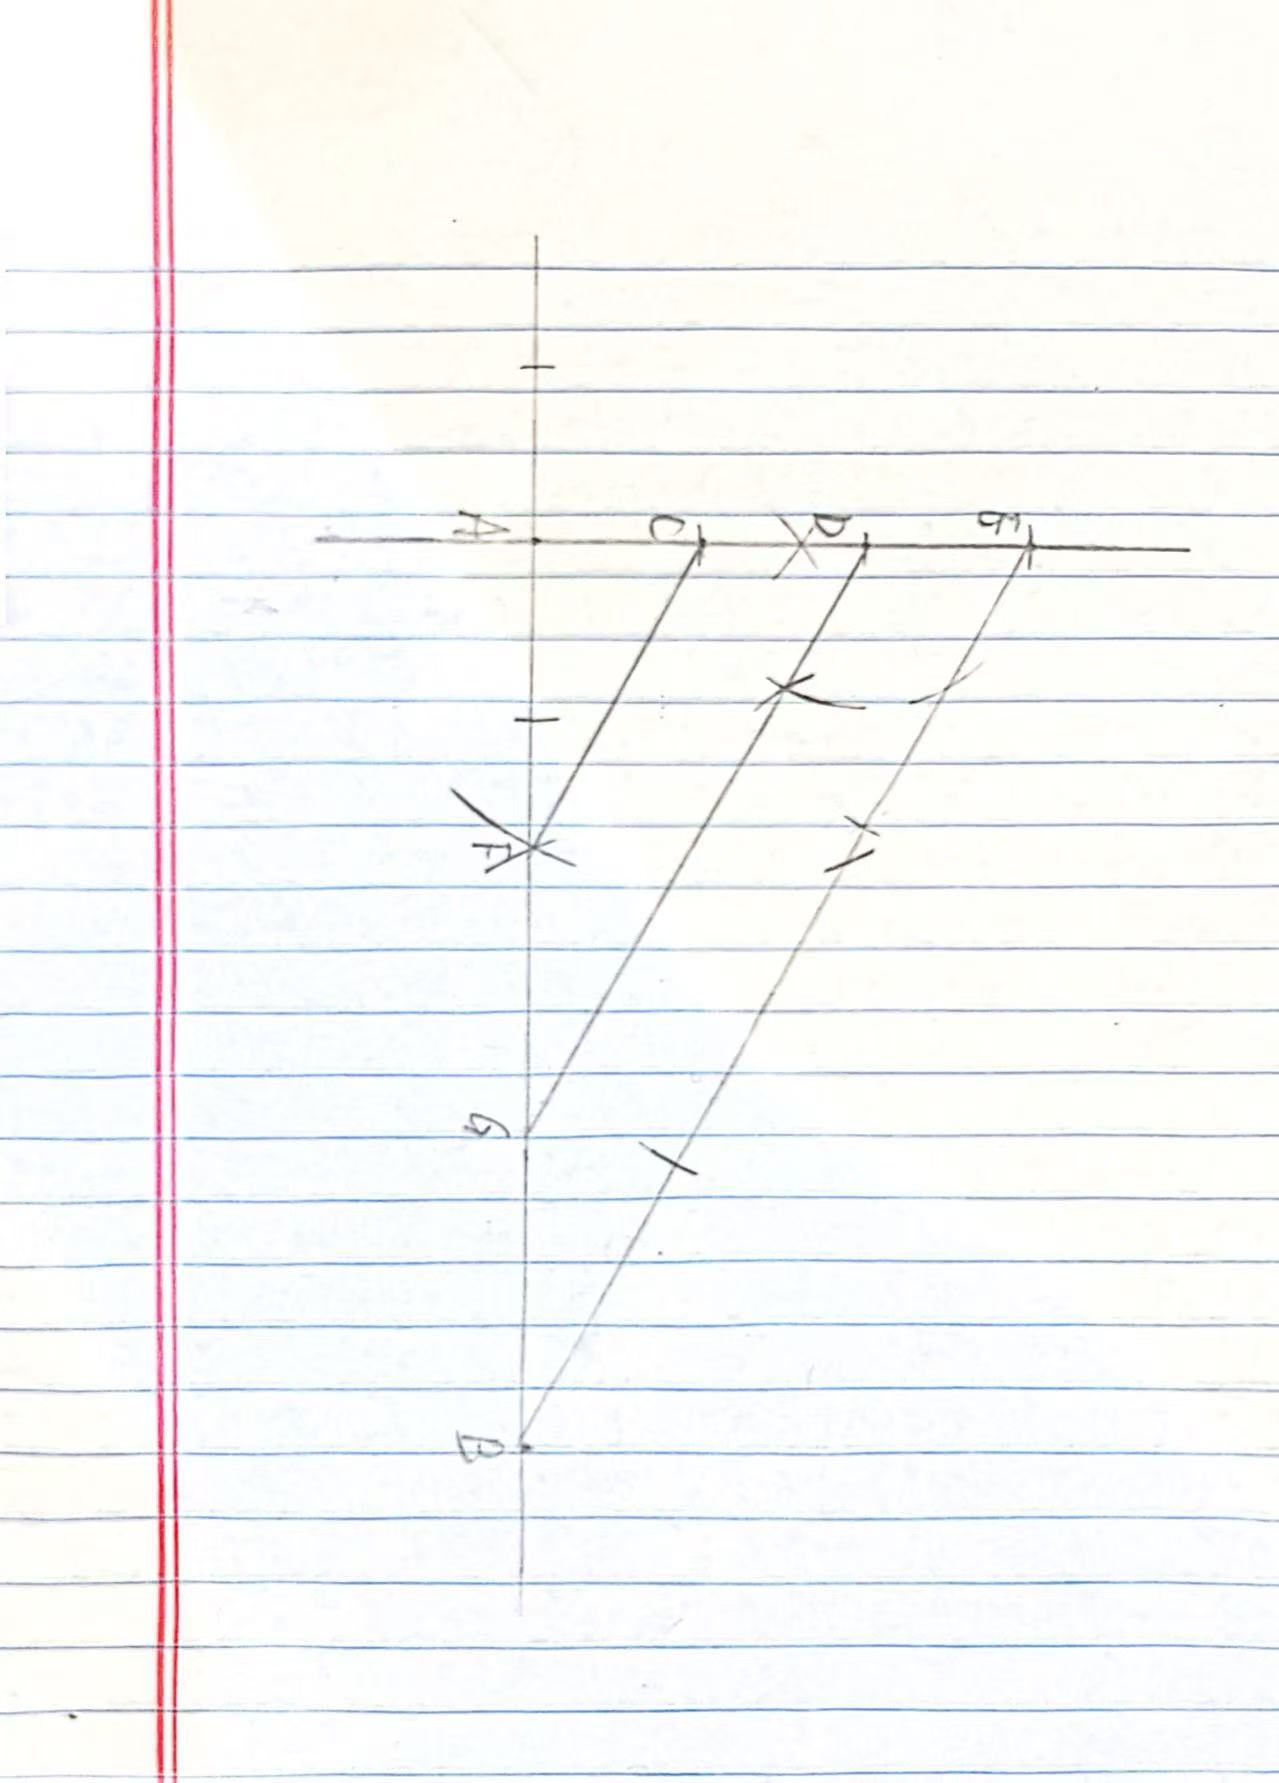 E
D
C
A F G B